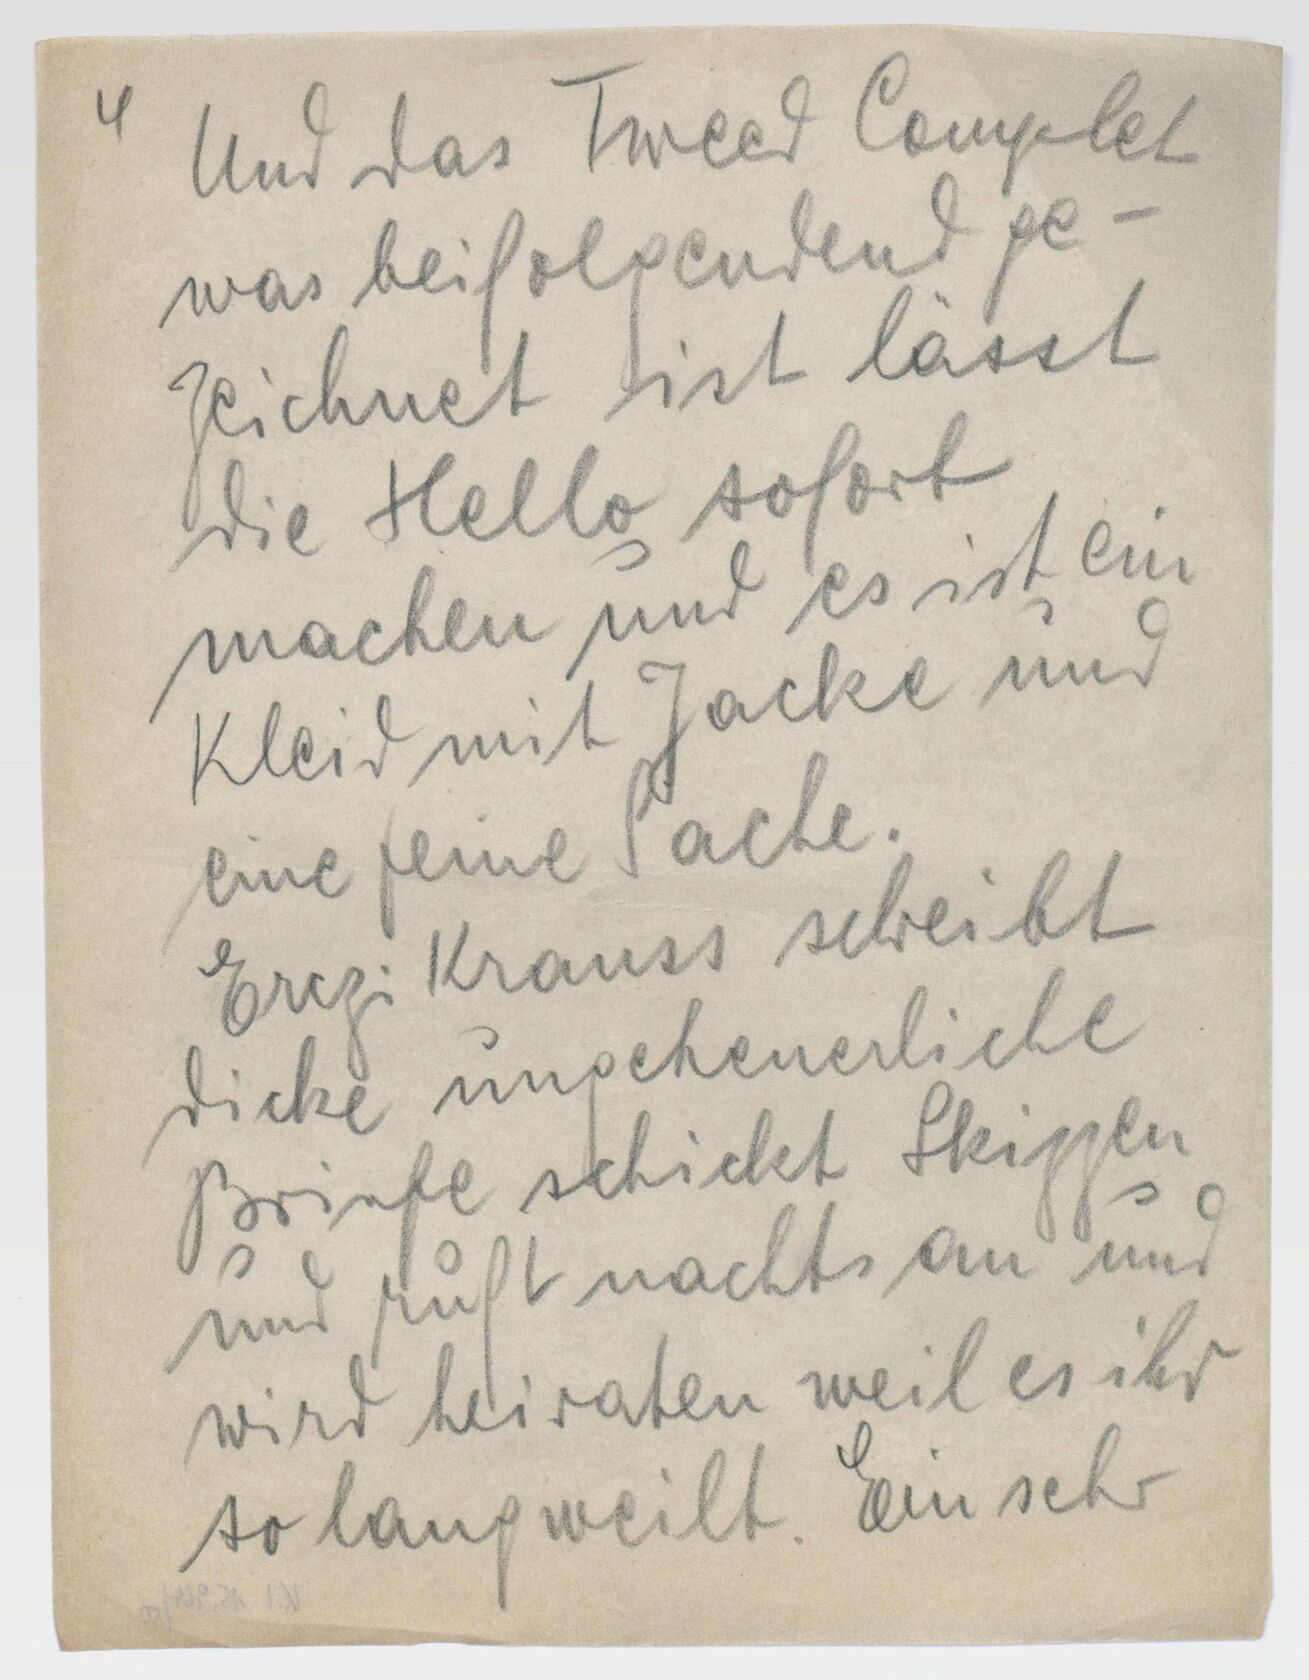 4
Und das Tweed Complet
was beifolgendend ge-
zeichnet ist lässt
die Hello sofort
machen und es ist ein
Kleid mit Jacke und
eine feine Sache.
Erczi Krauss schreibt
dicke ungeheuerliche
Briefe schickt Skizzen
und ruft nachts an und
wird heiraten weil es ihr
so langweilt. Ein sehr